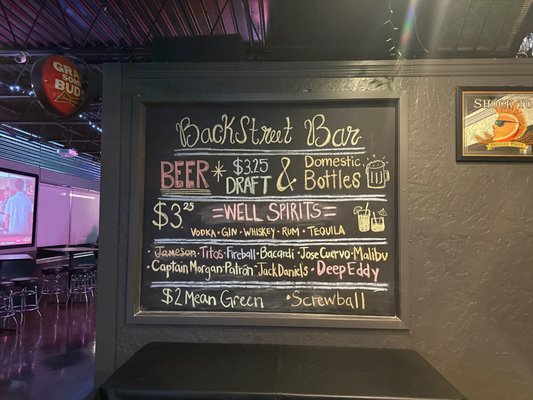 GRAB
SOME
BUDS
BackStreet Bar
BEER * $3.25 DRAFT & Domestic Bottles
$3.25 =WELL SPIRITS=
VODKA • GIN • WHISKEY • RUM • TEQUILA
Jameson • Titos • Fireball • Bacardi • Jose Cuervo • Malibu
• Captain Morgan • Patrón • Jack Daniels • Deep Eddy
$2 Mean Green • Screwball
SHOCK TO